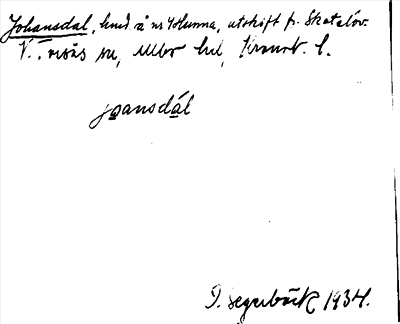 Johansdal, hmd å nr 4 Hunna, utskift fr. Skatelöv
V. Torsås sn, Allbo hd, Kronob. l.
jo̲ansdá̲l
I. Segerbäck 1934.